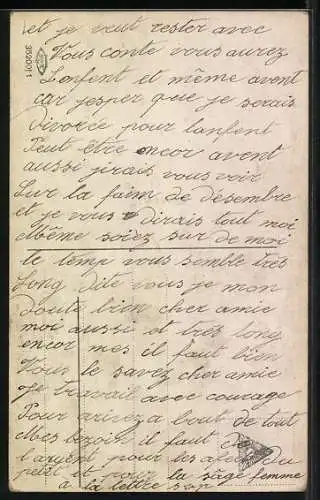 et je veut rester avec
Vous conte vous aurez
Lenfent et même avent
car jesper que je serais
divorcé pour lanfent
Peut être encor avent
aussi jirais vous voir
Sur la faim de désembre
et je vous dirais tout moi
Même soiez sur de moi
le temp vous semble très
Long dite vous je mon
doute bien cher amie
moi aussi et très long
encor mes il faut bien
Vous le savez cher amie
Je travail avec courage
Pour arivez a bout de tout
Mes bezoin il faut de
largent pour les
petit et pour la sage femme
a la lettre